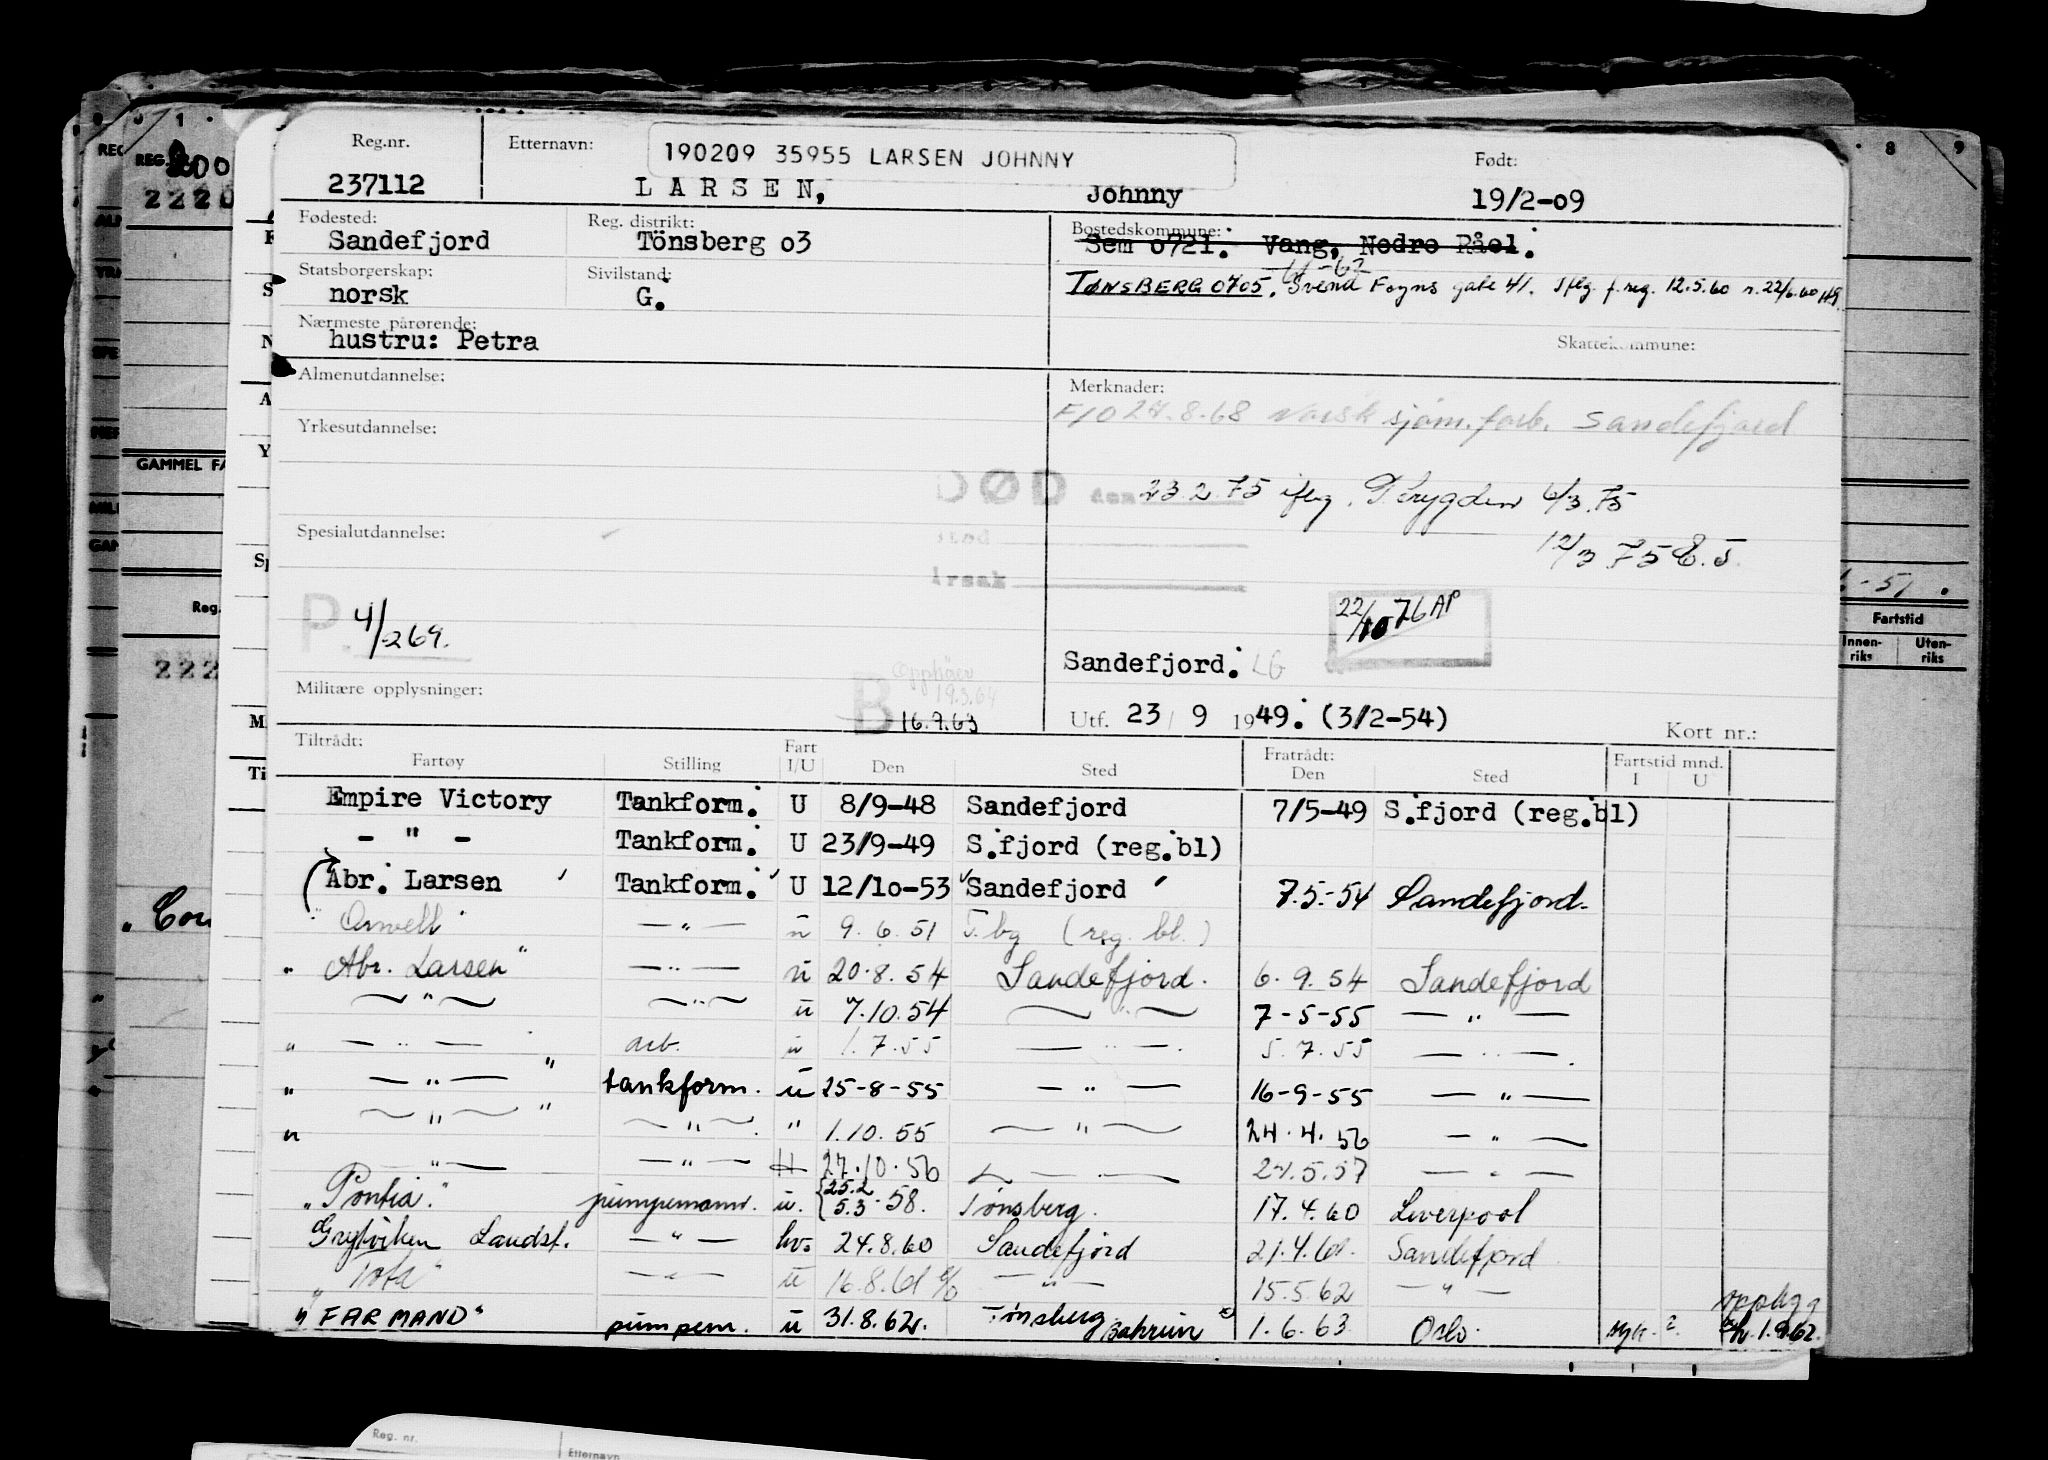 Reg.nr. Etternavn: 190209 35955 LARSEN JOHNNY Født:
237112 LARSEN, Johnny 19/2-09
Fødested: Reg. distrikt: Bostedskommune:
Sandefjord Tönsberg o3 Sem o721. Vang, Nedre Råel.
Statsborgerskap: Sivilstand: 61-62
norsk G. TØNSBERG 0705, Svend Foyns gate 41. Iflg. f. reg. 12.5.60 r. 22/6.60 HG
Nærmeste pårørende: Skattekommune:
hustru: Petra
Almenutdannelse: Merknader:
F/O 27.8.68 Norsk sjøm.forb. Sandefjord
Yrkesutdannelse:
DØD den 23.2.75 iflg. T.trygden 6/3.75
Spesialutdannelse: sted 12/3 75 E.J.
Årsak
P. 4/269. 22/10 76 AP
Sandefjord. LG
Militære opplysninger: B Opphæv 19.3.64
16.9.63 Utf. 23/9 1949. (3/2-54) Kort nr.:
Tiltrådt: Fratrådt: Fartstid mnd.
Fartøy Stilling Fart I/U Den Sted Den Sted I U
Empire Victory Tankform. U 8/9-48 Sandefjord 7/5-49 S.fjord (reg.bl)
- " - Tankform. U 23/9-49 S.fjord (reg.bl)
Abr. Larsen Tankform. U 12/10-53 Sandefjord 7.5.-54 Sandefjord.
" Orwell — " — u 9.6.51 T.bg (reg. bl.)
" Abr. Larsen" — " — u 20.8.54 Sandefjord. 6.9.54 Sandefjord
— " — — " — u 7.10.54 — " — 7-5-55 — " —
" — " — arb. u 1.7.55 — " — 5.7.55 — " —
" — " — " tankform. u 25-8-55 — " — 16-9-55 — " —
" — " — " — " — " 1.10.55 — " — 24.4.56 — " —
— " — — " — U 27.10.56 — " — 21.5.57 — " —
"Pontia." pumpemann. u. 25.2 5.3.58. Tønsberg. 17.4.60 Liverpool
Grytviken Landst. — " — hv. 24.8.60 Sandefjord 21.4.61. Sandefjord
" Tota" — " — u 16.8.61 — " — 15.5.62 — " —
" FARMAND" pumpem. u 31.8.62. Tønsberg Bahrein 1.6.63 Oslo. syk. 2.
1.9.62.
REG.
GAMMEL FA
Reg.
Fartstid
Innen-riks Uten-riks
Reg. nr. Etternavn